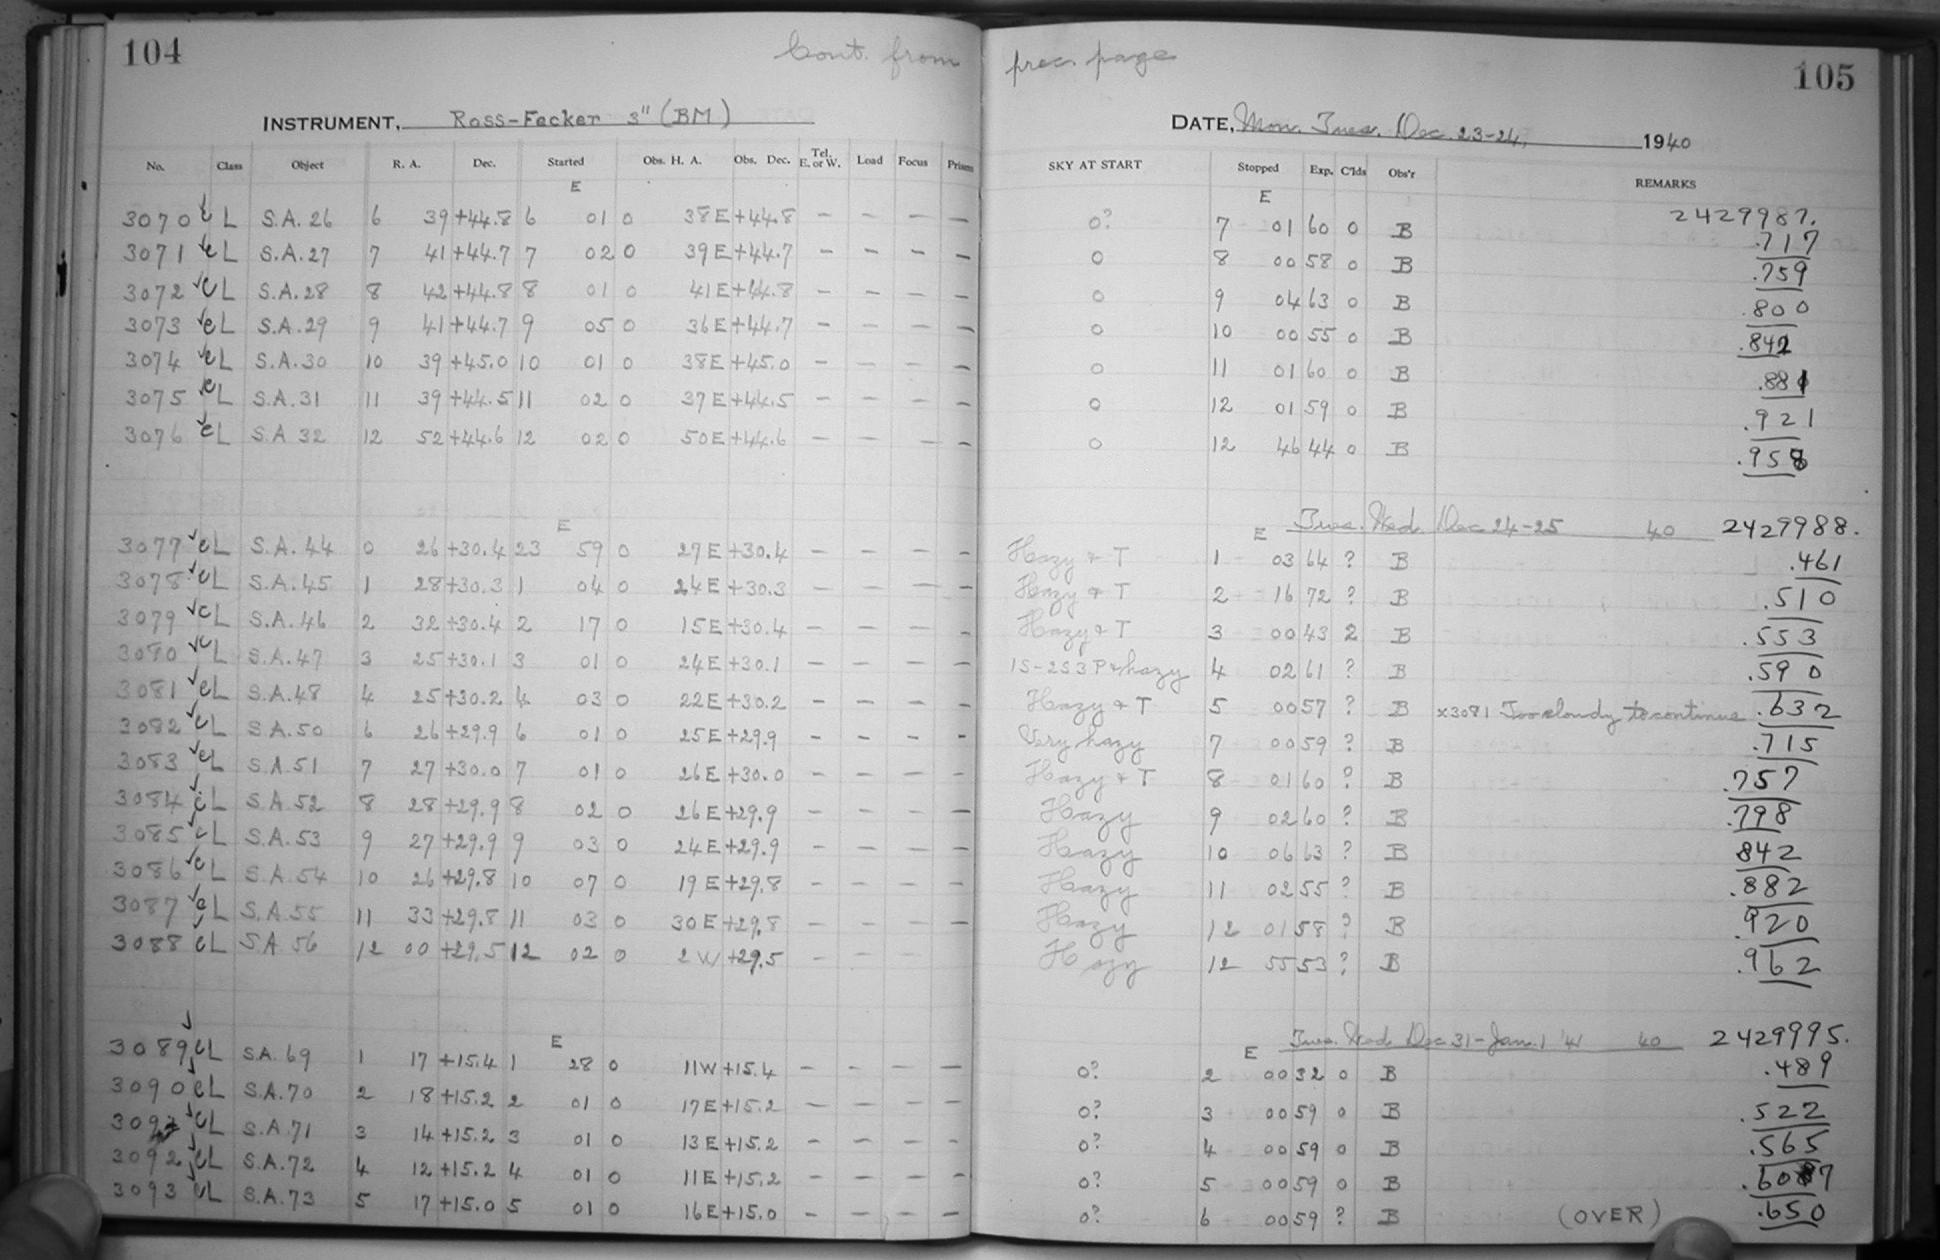 104
Cont. from prec. page
105
INSTRUMENT, Ross-Fecker 3" (BM)
DATE, Mon. Tues. Dec. 23-24, 1940
No. Class Object R. A. Dec. Started Obs. H. A. Obs. Dec. Tel. E. or W. Load Focus Prisms SKY AT START Stopped Exp. C'lds Obs'r REMARKS
E E
2429987.
3070 cL S.A. 26 6 39 +44.8 6 01 0 38E +44.8 - - - - 0? 7 01 60 0 B .717
3071 cL S.A. 27 7 41 +44.7 7 02 0 39E +44.7 - - - - 0 8 00 58 0 B .759
3072 cL S.A. 28 8 42 +44.8 8 01 0 41E +44.8 - - - - 0 9 04 63 0 B .800
3073 cL S.A. 29 9 41 +44.7 9 05 0 36E +44.7 - - - - 0 10 00 55 0 B .842
3074 cL S.A. 30 10 39 +45.0 10 01 0 38E +45.0 - - - - 0 11 01 60 0 B .881
3075 cL S.A. 31 11 39 +44.5 11 02 0 37E +44.5 - - - - 0 12 01 59 0 B .921
3076 cL S.A 32 12 52 +44.6 12 02 0 50E +44.6 - - - - 0 12 46 44 0 B .958
E E Tues. Wed. Dec 24-25 40 2429988.
3077 cL S.A. 44 0 26 +30.4 23 59 0 27E +30.4 - - - - Hazy + T 1 03 64 ? B .461
3078 cL S.A. 45 1 28 +30.3 1 04 0 24E +30.3 - - - - Hazy + T 2 16 72 ? B .510
3079 cL S.A. 46 2 32 +30.4 2 17 0 15E +30.4 - - - - Hazy + T 3 00 43 2 B .553
3080 cL S.A. 47 3 25 +30.1 3 01 0 24E +30.1 - - - - 1S-2S3P + hazy 4 02 61 ? B .590
3081 cL S.A. 48 4 25 +30.2 4 03 0 22E +30.2 - - - - Hazy + T 5 00 57 ? B x3081 Too cloudy to continue .632
3082 cL S.A. 50 6 26 +29.9 6 01 0 25E +29.9 - - - - Very hazy 7 00 59 ? B .715
3083 cL S.A 51 7 27 +30.0 7 01 0 26E +30.0 - - - - Hazy + T 8 01 60 ? B .757
3084 cL S.A. 52 8 28 +29.9 8 02 0 26E +29.9 - - - - Hazy 9 02 60 ? B .798
3085 cL S.A. 53 9 27 +29.9 9 03 0 24E +29.9 - - - - Hazy 10 06 63 ? B 842
3086 cL S.A. 54 10 26 +29.8 10 07 0 19E +29.8 - - - - Hazy 11 02 55 ? B .882
3087 cL S.A. 55 11 33 +29.8 11 03 0 30E +29.8 - - - - Hazy 12 01 58 ? B .920
3088 cL S.A. 56 12 00 +29.5 12 02 0 2W +29.5 - - - Hazy 12 55 53 ? B .962
E E Tues. Wed. Dec 31-Jan. 1 '41 40 2429995.
3089 cL S.A. 69 1 17 +15.4 1 28 0 11W +15.4 - - - - 0? 2 00 32 0 B .489
3090 cL S.A. 70 2 18 +15.2 2 01 0 17E +15.2 - - - - 0? 3 00 59 0 B .522
3091 cL S.A. 71 3 14 +15.2 3 01 0 13E +15.2 - - - - 0? 4 00 59 0 B .565
3092 cL S.A. 72 4 12 +15.2 4 01 0 11E +15.2 - - - - 0? 5 00 59 0 B .607
3093 cL S.A. 73 5 17 +15.0 5 01 0 16E +15.0 - - - - 0? 6 00 59 ? B (OVER) .650